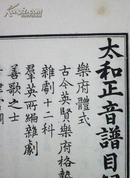 太和正音譜目錄
樂府體式
古今英賢樂府格勢
雜劇十二科
羣英所編雜劇
善歌之士